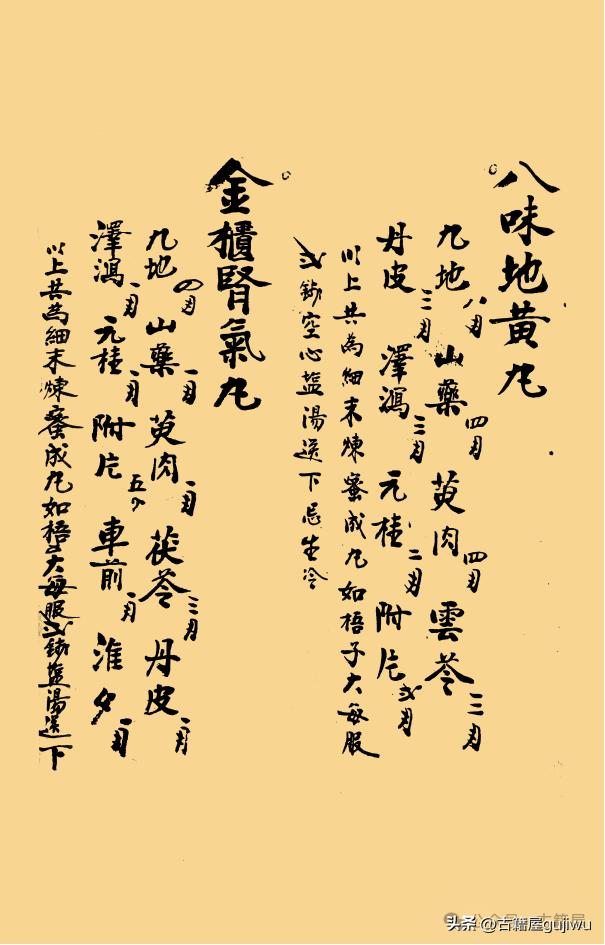 八味地黄丸
九地八两 山藥四两 萸肉四两 雲苓三两
丹皮三两 澤瀉三两 元桂二两 附片弍两
以上共為細末煉蜜成丸如梧子大每服
弍錢空心盐湯送下忌生冷
金櫃腎氣丸
九地四两 山藥一两 萸肉一两 茯苓三两 丹皮一两
澤瀉一两 元桂一两 附片五 車前一两 淮夕一两
以上共為細末煉蜜成丸如梧子大每服弍錢盐湯送下
头条 @古籍屋gujiwu